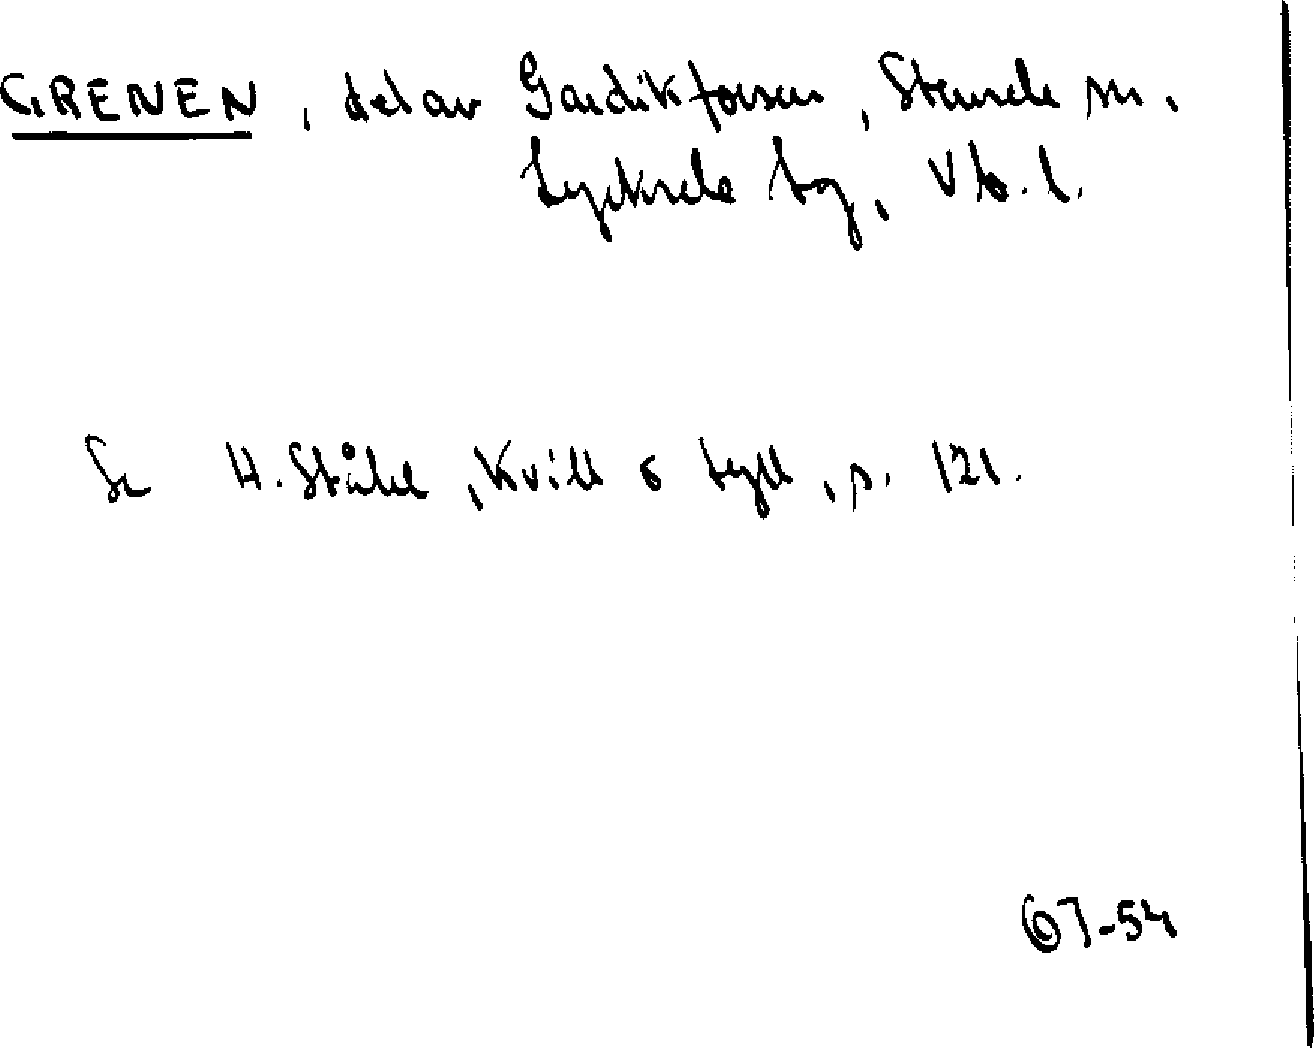 GRENEN, del av Gardikforsen, Stensele sn.
Lycksele tg, Vb. l.
Se H. Ståhl, Kvill o tyll, s. 121.
67-54